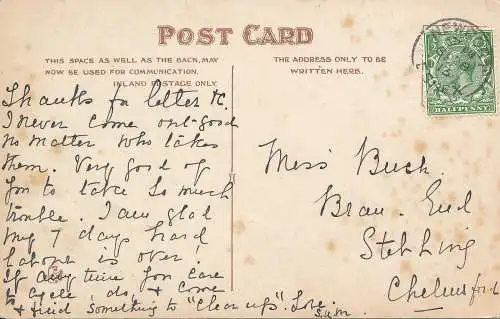 POST CARD
THIS SPACE AS WELL AS THE BACK, MAY
NOW BE USED FOR COMMUNICATION.
INLAND POSTAGE ONLY
THE ADDRESS ONLY TO BE
WRITTEN HERE.
HALFPENNY
Thanks for letter &c.
I never come out good
no matter who takes
them. Very good of
you to take so much
trouble. I am glad
my 7 days hard
labour is over!
If any time you care
to cycle, do, & come
& find something to "clear up". Love.
Miss Buck.
Bran. End
Stebbing
Chelmsford